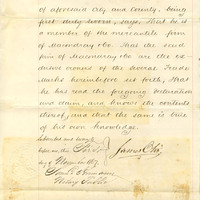 of aforesaid City and County. being
first duly sworn, says, That he is
a member of the mercantile firm
of Macondray &Co. That the said
firm of Macondray &Co are the ex-
clusive owners of the several Trade
Marks hereinbefore set forth, that
he has read the foregoing declaration
and claim, and knows the contents
thereof, and that the same is true
of his own knowledge.
Subscribed and sworn to
before me, this
day of
James Otis
Notary Public